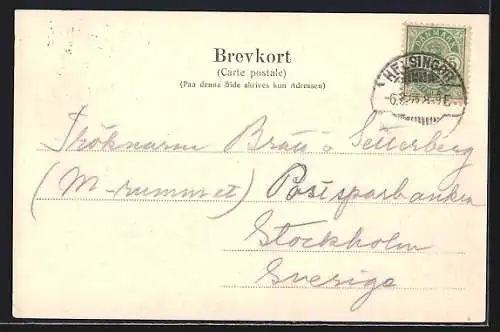 Brevkort
(Carte postale)
(Paa denne Side skrives kun Adressen)
DANMARK
HELSINGØR
Fröknarna Brau o Setterberg
(M-rummet) Postsparbanken
Stockholm
Sverige